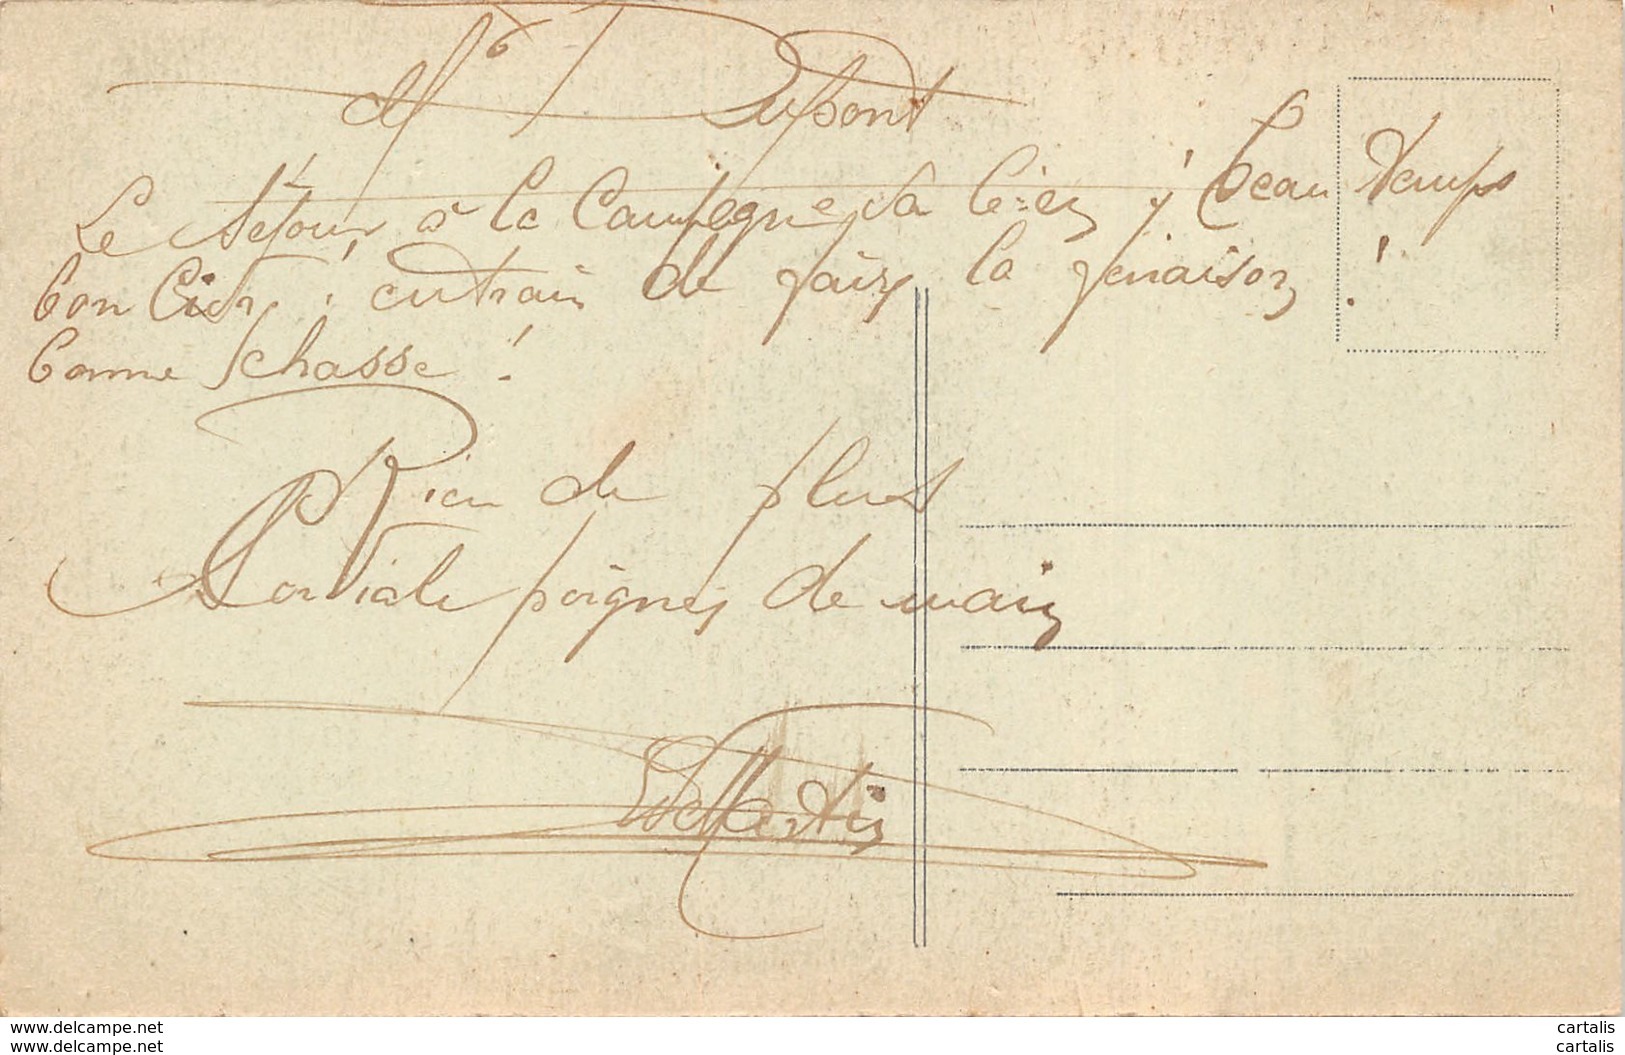 Mr Dupont
Le Séjour à la Campagne va bien ! beau temps
bon Cidre, entrain de faire la fenaison !
bonne Schasse !
Rien de plus
Cordiale poignes de main
Martin
www.delcampe.net
www.delcampe.net
cartalis
cartalis